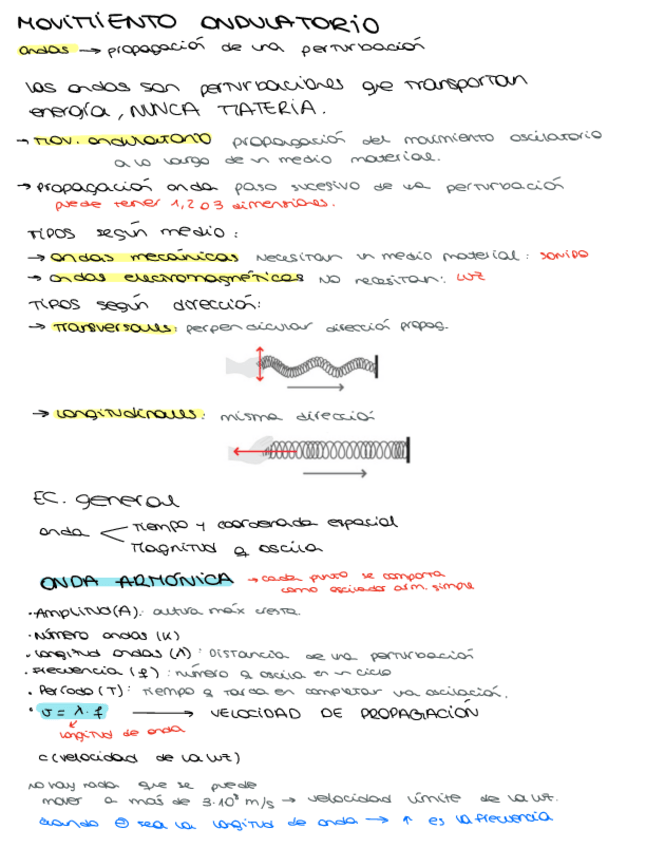 MOVIMIENTO ONDULATORIO
ondas → propagación de una perturbación
Las ondas son perturbaciones que transportan
energía, NUNCA MATERIA.
→ MOV. ondulatorio propagación del movimiento oscilatorio
a lo largo de un medio material.
→ propagación onda paso sucesivo de una perturbación
puede tener 1, 2 o 3 dimensiones.
TIPOS según medio:
→ ondas mecánicas NECESITAN un medio material: SONIDO
→ ondas electromagnéticas NO necesitan: LUZ
TIPOS según dirección:
→ Transversales: perpendicular dirección propag.
→ Longitudinales: misma dirección
EC. general
onda < Tiempo y coordenada espacial
Magnitud q oscila
ONDA ARMÓNICA → cada punto se comporta
como oscilador arm. simple
· Amplitud (A): altura máx cresta.
· Número ondas (K)
· Longitud ondas (λ): DISTANCIA de una perturbación
· Frecuencia (f): número q oscila en un ciclo
· Período (T): tiempo q tarda en completar una oscilación.
· v = λ · f → VELOCIDAD DE PROPAGACIÓN
longitud de onda
c (velocidad de la luz)
no hay nada que se puede
mover a más de 3·10⁸ m/s → velocidad límite de la luz.
cuando ⊖ sea la longitud de onda → ↑ es la frecuencia